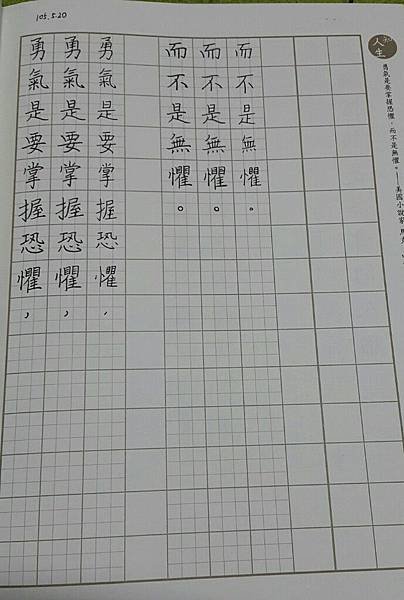 105.5.20
勇氣是要掌握恐懼，
勇氣是要掌握恐懼，
勇氣是要掌握恐懼，
而不是無懼。
而不是無懼。
而不是無懼。
人生
勇氣是要掌握恐懼，而不是無懼。——美國小說家